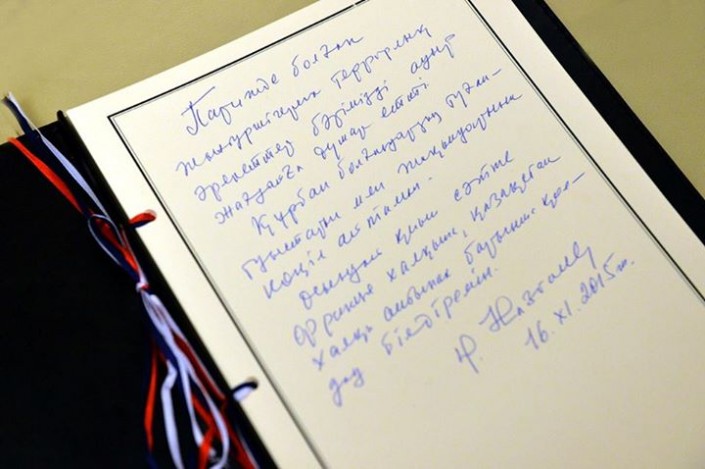 Парижде болған
жантүршігерлік террорлық
әрекеттер бәрімізді ауыр
жағдайға душар етті.
Құрбан болғандардың туған-
туыстары мен жақындарына
көңіл айтамын.
осындай қиын сәтте
француз халқына, қазақстан
халқы атынан барынша қол-
дау білдіремін.
Н. Назарбаев
16.XI.2015ж.